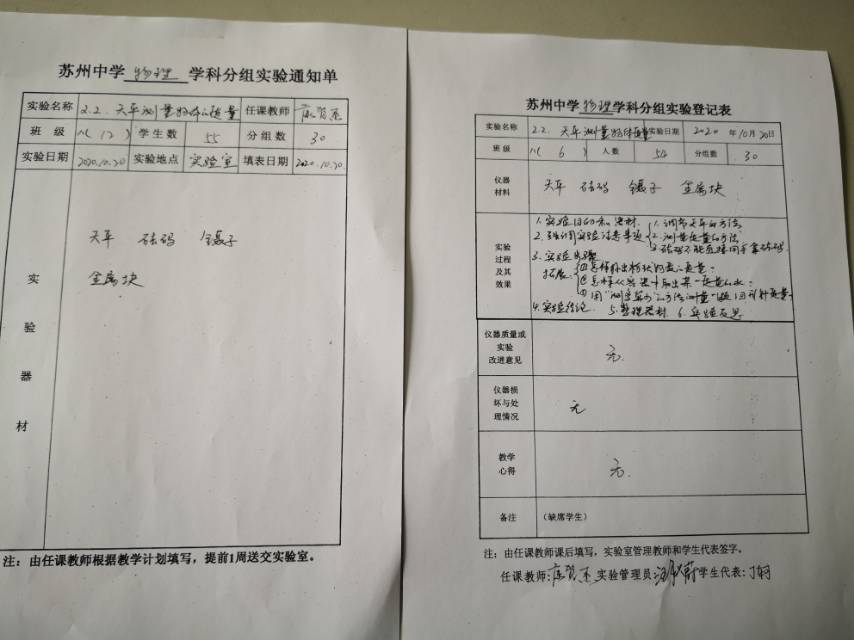 苏州中学 物理 学科分组实验通知单
实验名称 2.2. 天平测量物体的质量 任课教师
班 级 八(12) 学生数 55 分组数 30
实验日期 2020.10.20 实验地点 实验室 填表日期 2020.10.20.
实验器材
天平 砝码 镊子
金属块
注：由任课教师根据教学计划填写，提前1周送交实验室。
苏州中学物理学科分组实验登记表
实验名称 2.2. 天平测量物体质量 实验日期 2020 年10月20日
班 级 八(6) 人数 54 分组数 30
仪器材料 天平 砝码 镊子 金属块
实验过程及其效果
1. 实验目的和器材.
2. 强调实验注意事项 1. 调节天平的方法
2. 测量质量的方法
3. 砝码不能直接用手拿砝码.
3. 实验步骤
拓展:
4. 实验结论. 5. 整理器材 6. 实验反思
仪器质量或实验改进意见 无.
仪器损坏与处理情况 无
教学心得 无.
备注 （缺席学生）
注：由任课教师课后填写，实验室管理教师和学生代表签字。
任课教师: 实验管理员 学生代表: